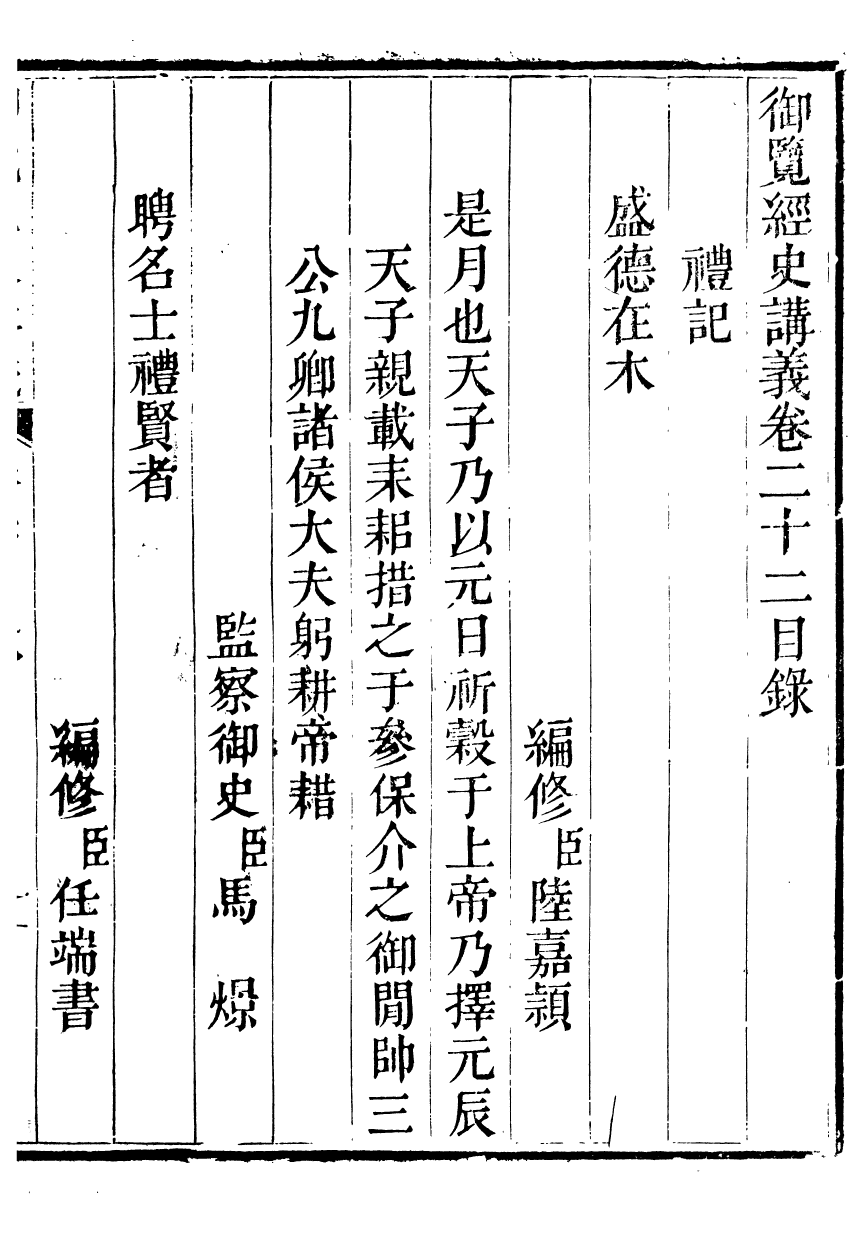 御覽經史講義卷二十二目錄
禮記
盛德在木
編修臣陸嘉穎
是月也天子乃以元日祈穀于上帝乃擇元辰
天子親載耒耜措之于參保介之御閒帥三
公九卿諸侯大夫躬耕帝耤
監察御史臣馬 燝
聘名士禮賢者
編修臣任端書